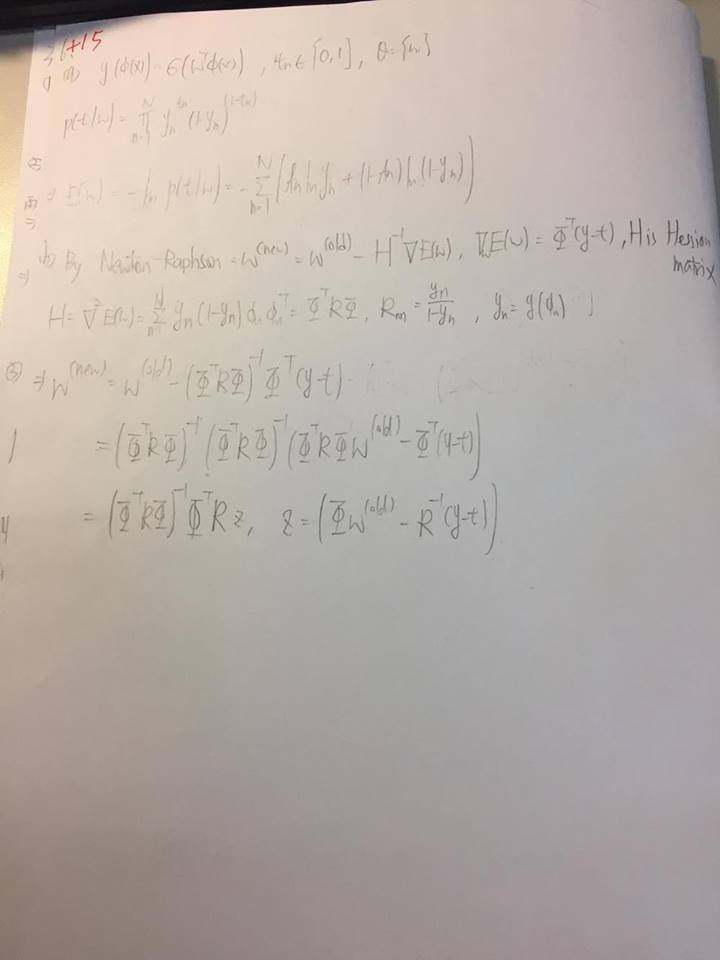 36+15
(a) y(φ(x)) = σ(wᵀφ(x)) , tₙ ∈ {0,1} , θ={w}
p(t/w) = ∏ₙ₌₁ᴺ yₙ^tₙ (1-yₙ)^(1-tₙ)
⇒ E(w) = -ln p(t/w) = -∑ₙ₌₁ᴺ (tₙ ln yₙ + (1-tₙ) ln (1-yₙ))
(b) By Newton-Raphson = w^(new) = w^(old) - H⁻¹∇E(w) , ∇wE(w) = Φᵀ(y-t) , H is Hessian matrix
H = ∇²E(w) = ∑ₙ₌₁ᴺ yₙ(1-yₙ) φₙ φₙᵀ = ΦᵀRΦ , Rₙₙ = yₙ/(1-yₙ) , yₙ = y(φₙ)
⇒ w^(new) = w^(old) - (ΦᵀRΦ)⁻¹ Φᵀ(y-t)
= (ΦᵀRΦ)⁻¹ (ΦᵀRΦ)⁻¹ (ΦᵀRΦw^(old) - Φᵀ(y-t))
= (ΦᵀRΦ)⁻¹ ΦᵀR z , z = (Φw^(old) - R⁻¹(y-t))